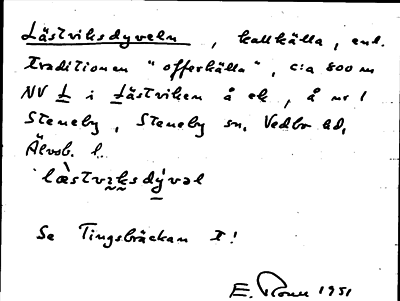 Lästviksdyveln, kallkälla, enl.
Traditionen "offerkälla", c:a 800 m
NV L i Lästviken å ek, å nr 1
Steneby, Steneby sn, Vedbo hd,
Älvsb. l.
læ̀stvı̰ksdý̱vəl
Se Tingsbräckan I!
E. 1951